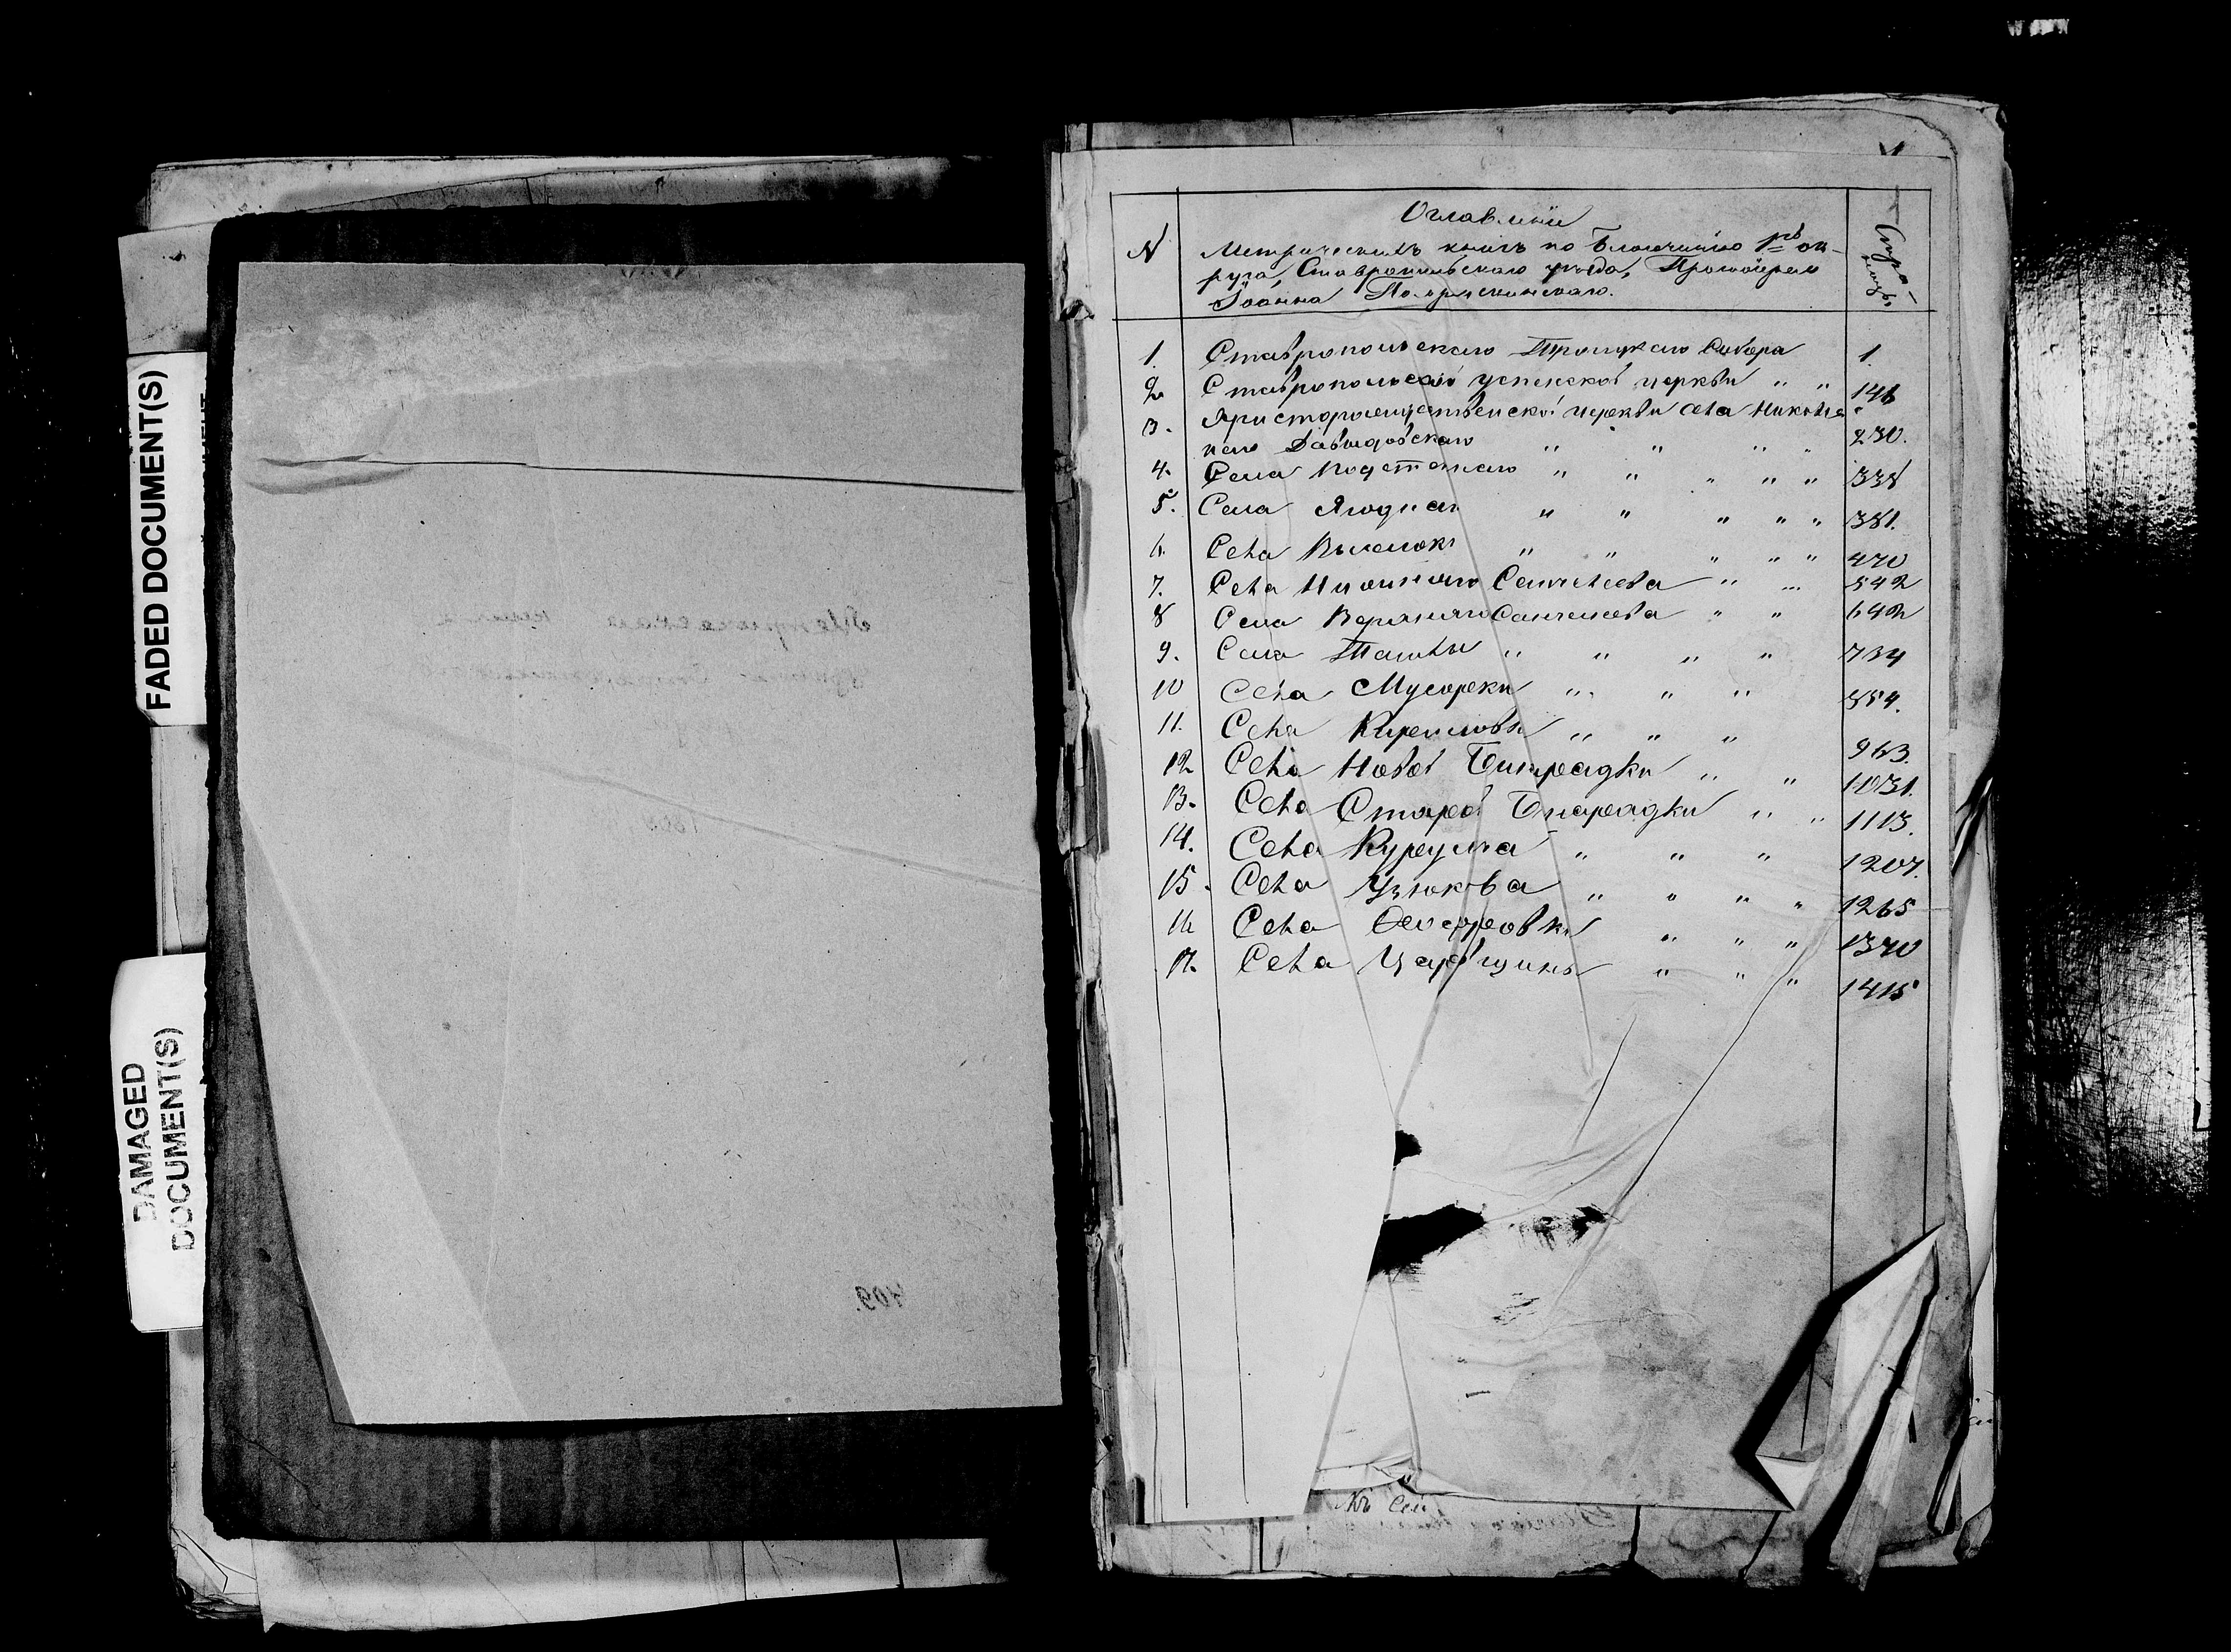 FADED DOCUMENT(S)
DAMAGED
DOCUMENT(S)
409.
Оглавленiе
N Метрическихъ книгъ по Благочинiю 1го ок-
руга, Ставропольскаго уѣзда, Протоiерея
Iоанна
Стра-
ницы
1. Ставропольскаго Троицкаго Собора 1
2. Ставропольской успенской церкви " " 146
3. Христорождественской церкви села Николь
скаго Давыдовскаго " " " " 230.
4. Села Подстепнаго " " " " " 338
5. Села Ягодная " " " " " 381.
6. Села Выселокъ " " " " " 470
7. Села Нижняго Санчелеева " " 542
8 Села Верхняго Санчелеева " " 642
9. Села Ташлы " " " " 734
10 Села Мусорки " " " 854.
11. Села Кириловки " " " 963.
12 Села Новой Бинрадки " " 1031.
13. Села Старой Бинарадки " " 1113.
14. Села Курумча " " " 1207.
15. Села Узюкова " " " " 1265
16 Села Федоровки " " " 1370
17. Села Царевщины " " " 1415